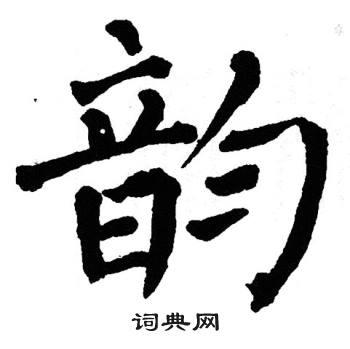 韵
词典网